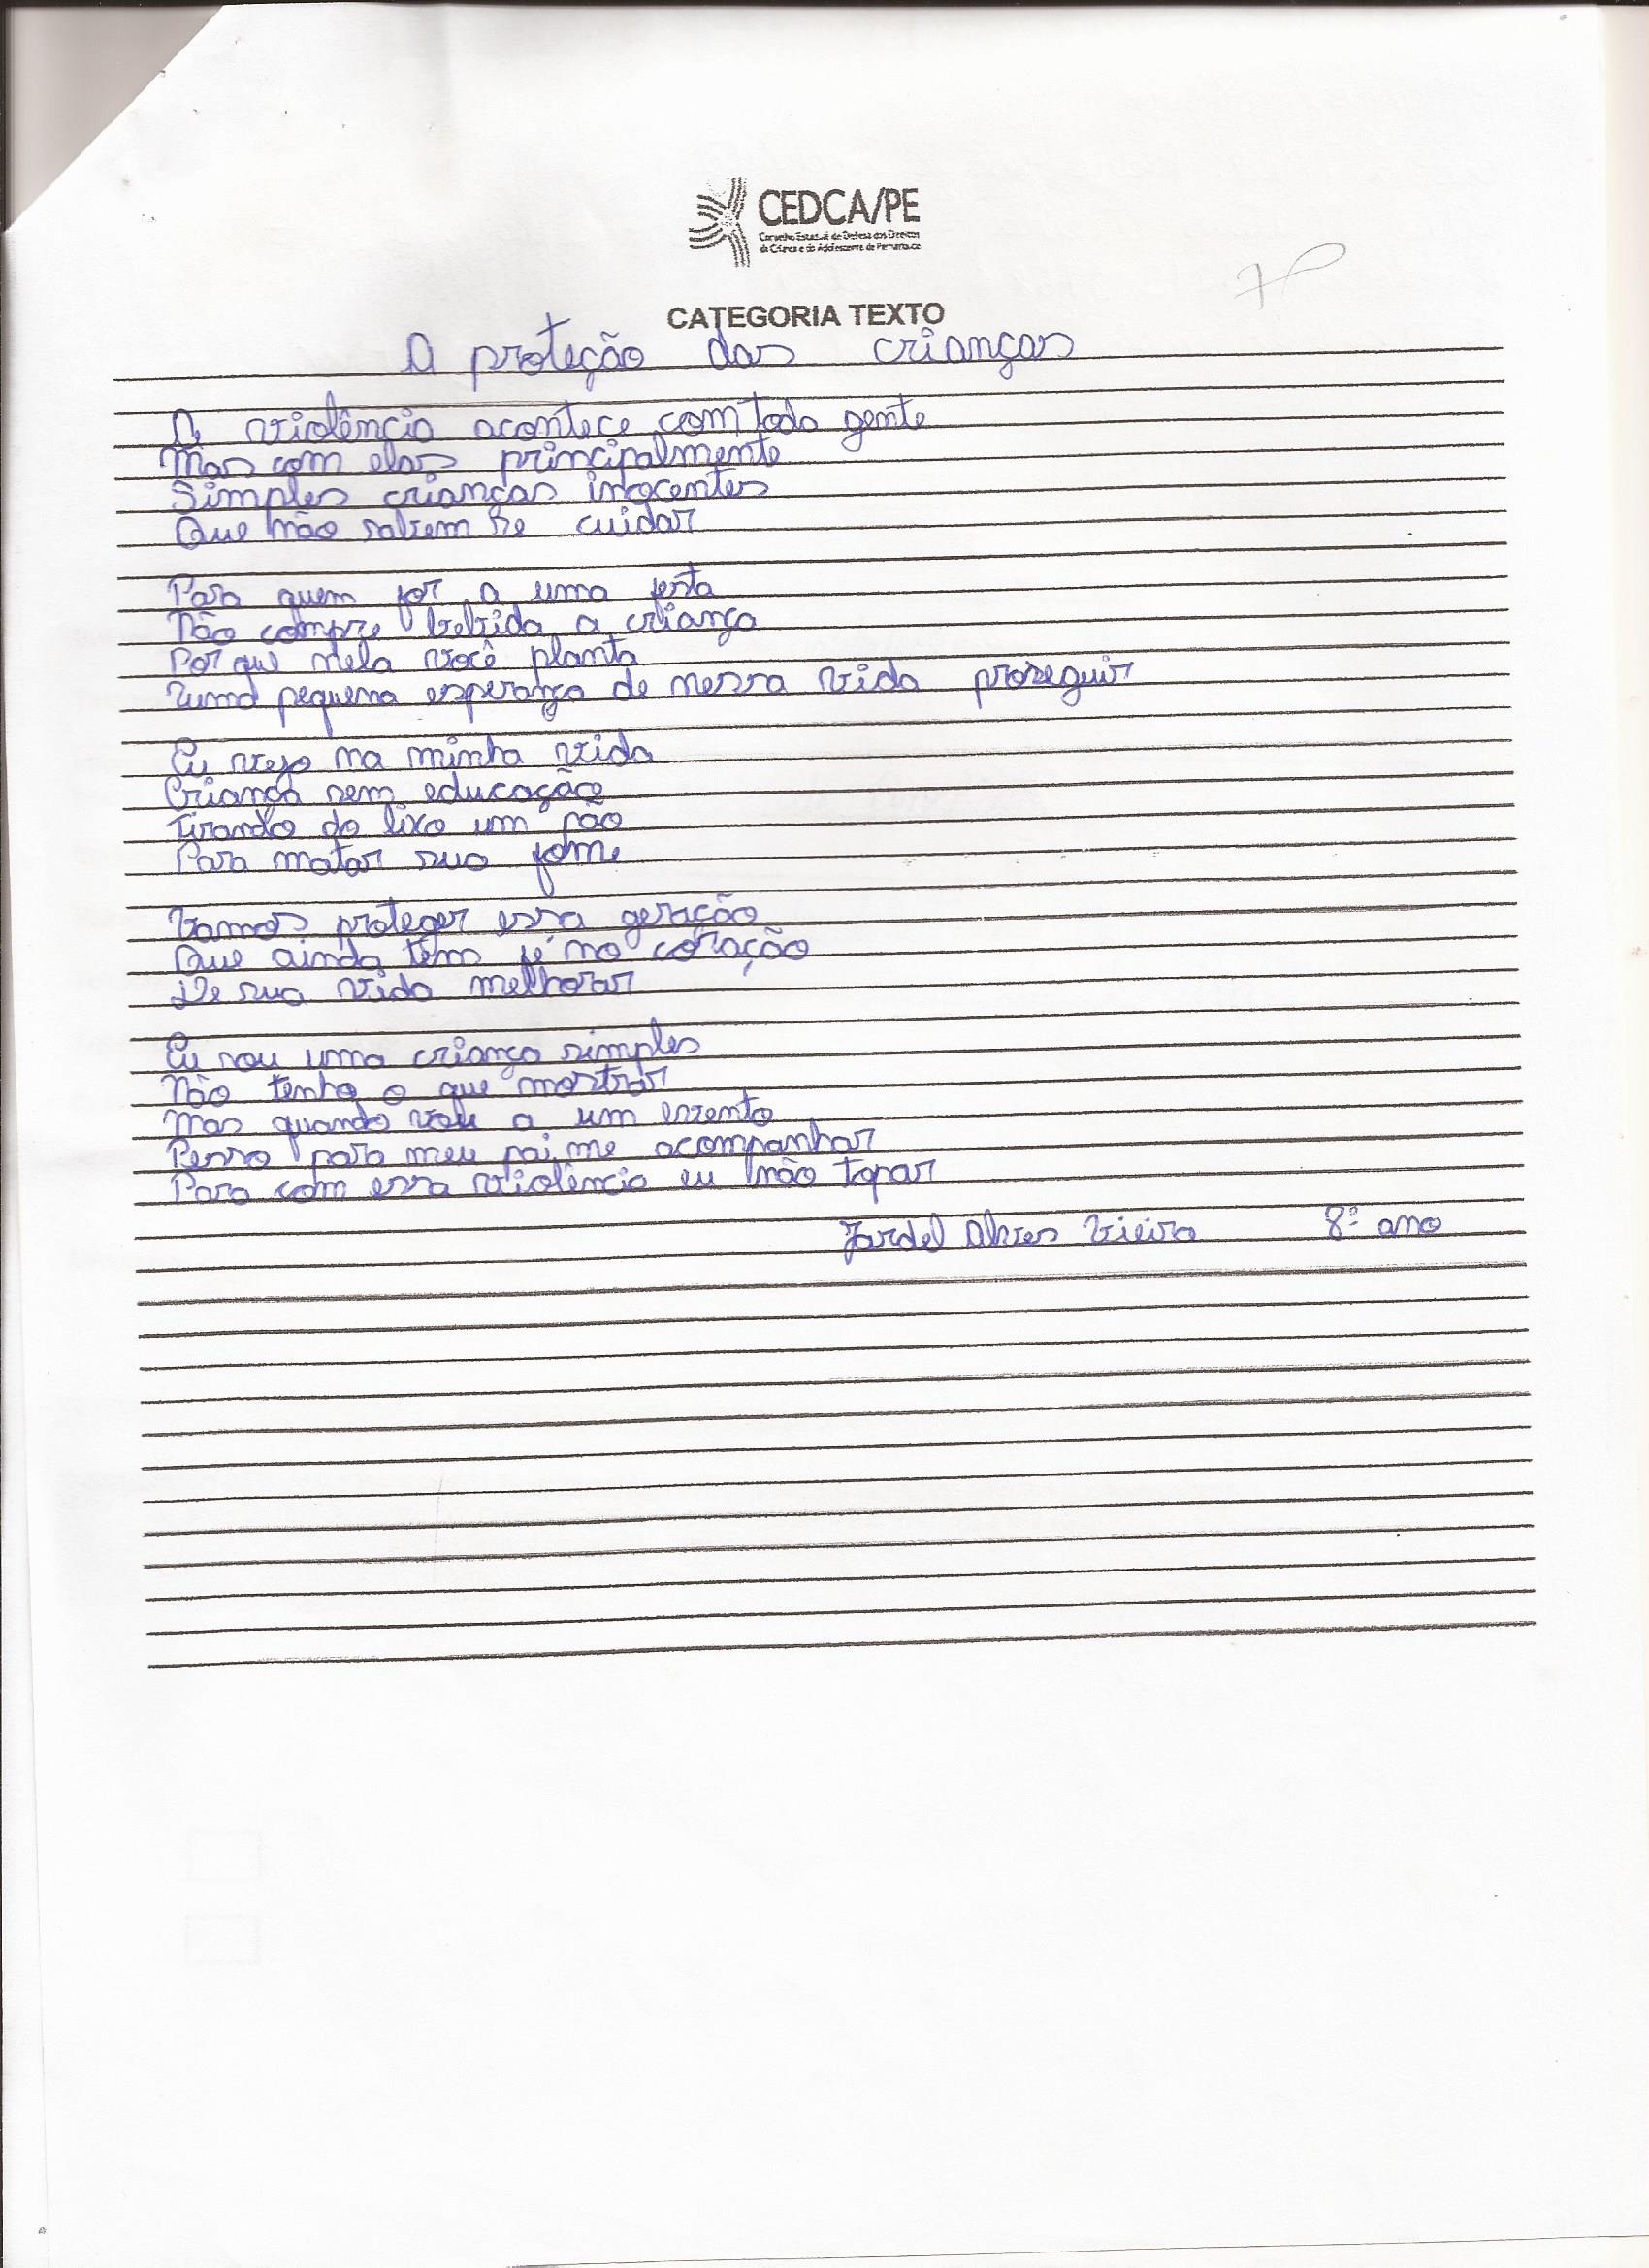 CEDCA/PE
Conselho Estadual de Defesa dos Direitos
da Criança e do Adolescente de Pernambuco
CATEGORIA TEXTO
A proteção das crianças
A violência acontece com toda gente
Mas com elas principalmente
Simples crianças inocentes
Que não sabem se cuidar
Para quem for a uma festa
Não compre bebida a criança
Por que nela você planta
uma pequena esperança de nessa vida proseguir
Eu vejo na minha vida
Criança sem educação
Tirando do lixo um pão
Para matar sua fome
Vamos proteger essa geração
Que ainda têm fé no coração
De sua vida melhorar
Eu sou uma criança simples
Não tenho o que mostrar
Mas quando vou a um evento
Pesso para meu pai me acompanhar
Para com essa violência eu não topar
Jardel Alves Vieira 8º ano